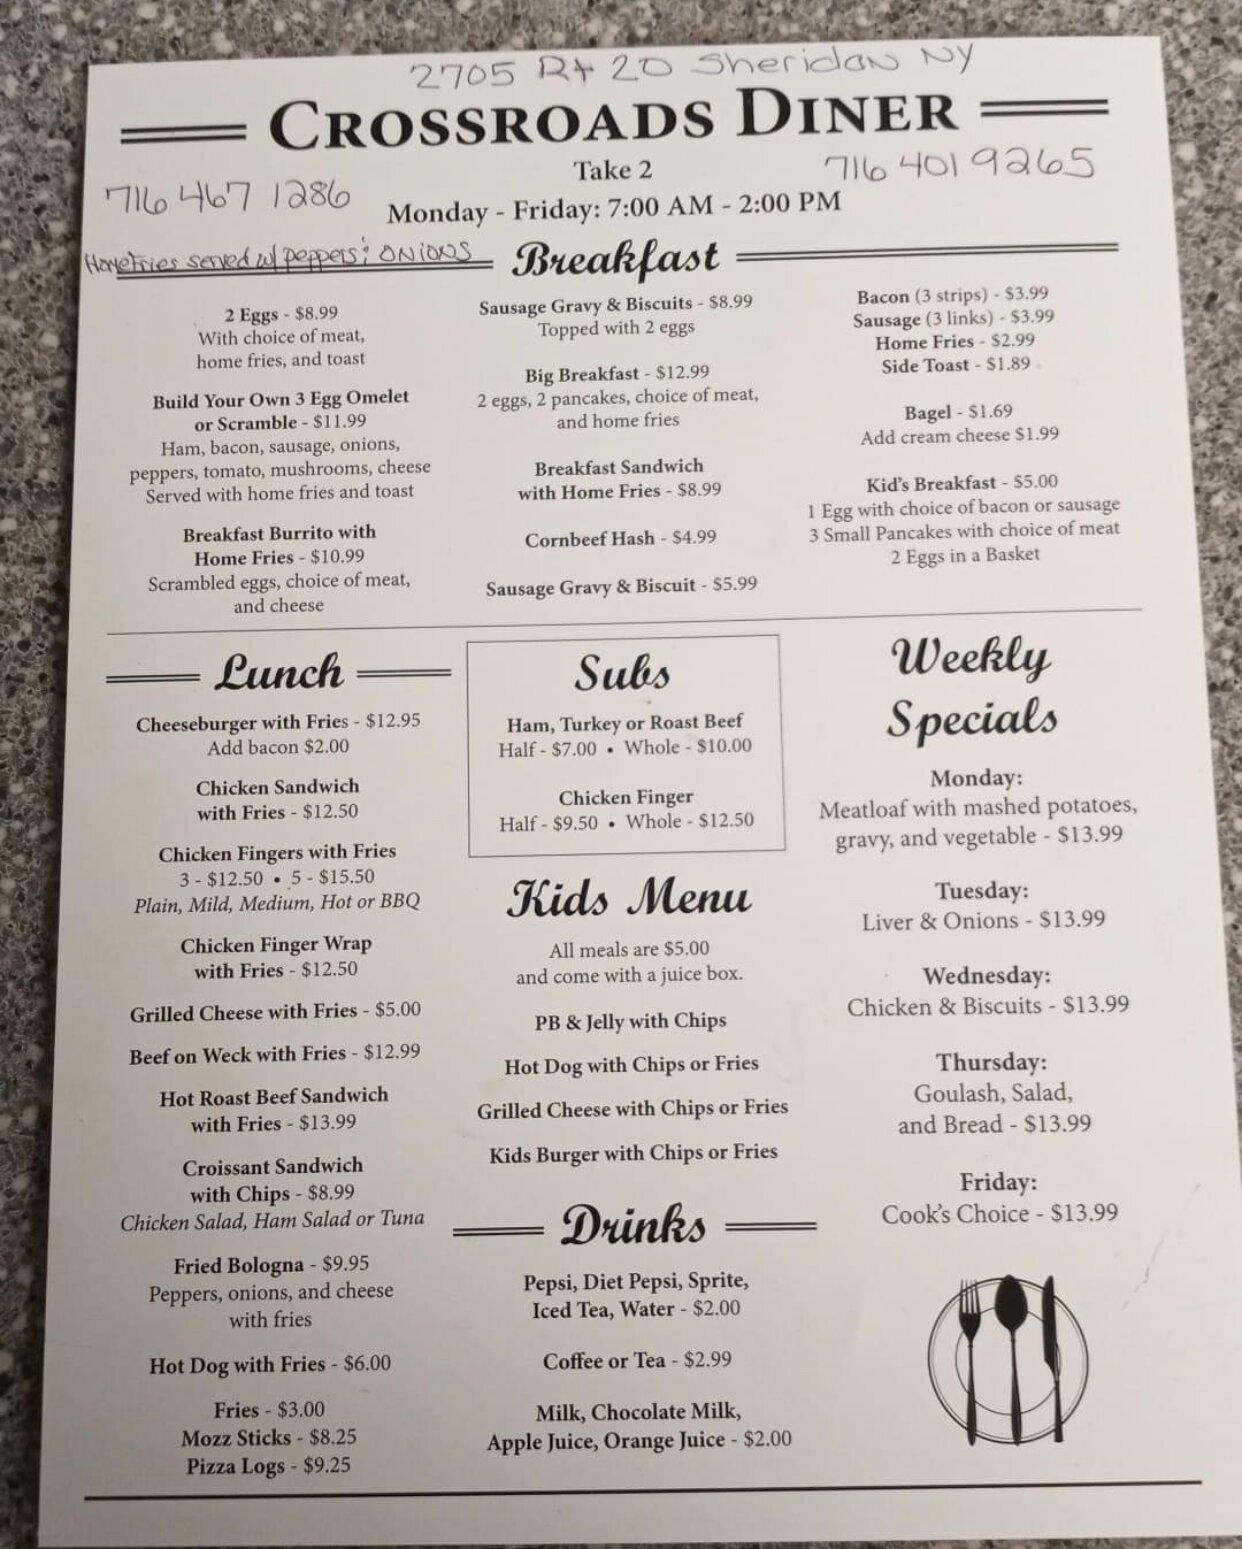 2705 Rt 20 Sheridan NY
CROSSROADS DINER
Take 2
716 401 9265
716 467 1286
Monday - Friday: 7:00 AM - 2:00 PM
HomeFries served w/ peppers & ONIONS
Breakfast
2 Eggs - $8.99
With choice of meat,
home fries, and toast
Build Your Own 3 Egg Omelet
or Scramble - $11.99
Ham, bacon, sausage, onions,
peppers, tomato, mushrooms, cheese
Served with home fries and toast
Breakfast Burrito with
Home Fries - $10.99
Scrambled eggs, choice of meat,
and cheese
Sausage Gravy & Biscuits - $8.99
Topped with 2 eggs
Big Breakfast - $12.99
2 eggs, 2 pancakes, choice of meat,
and home fries
Breakfast Sandwich
with Home Fries - $8.99
Cornbeef Hash - $4.99
Sausage Gravy & Biscuit - $5.99
Bacon (3 strips) - $3.99
Sausage (3 links) - $3.99
Home Fries - $2.99
Side Toast - $1.89
Bagel - $1.69
Add cream cheese $1.99
Kid's Breakfast - $5.00
1 Egg with choice of bacon or sausage
3 Small Pancakes with choice of meat
2 Eggs in a Basket
Lunch
Cheeseburger with Fries - $12.95
Add bacon $2.00
Chicken Sandwich
with Fries - $12.50
Chicken Fingers with Fries
3 - $12.50 • 5 - $15.50
Plain, Mild, Medium, Hot or BBQ
Chicken Finger Wrap
with Fries - $12.50
Grilled Cheese with Fries - $5.00
Beef on Weck with Fries - $12.99
Hot Roast Beef Sandwich
with Fries - $13.99
Croissant Sandwich
with Chips - $8.99
Chicken Salad, Ham Salad or Tuna
Fried Bologna - $9.95
Peppers, onions, and cheese
with fries
Hot Dog with Fries - $6.00
Fries - $3.00
Mozz Sticks - $8.25
Pizza Logs - $9.25
Subs
Ham, Turkey or Roast Beef
Half - $7.00 • Whole - $10.00
Chicken Finger
Half - $9.50 • Whole - $12.50
Kids Menu
All meals are $5.00
and come with a juice box.
PB & Jelly with Chips
Hot Dog with Chips or Fries
Grilled Cheese with Chips or Fries
Kids Burger with Chips or Fries
Drinks
Pepsi, Diet Pepsi, Sprite,
Iced Tea, Water - $2.00
Coffee or Tea - $2.99
Milk, Chocolate Milk,
Apple Juice, Orange Juice - $2.00
Weekly
Specials
Monday:
Meatloaf with mashed potatoes,
gravy, and vegetable - $13.99
Tuesday:
Liver & Onions - $13.99
Wednesday:
Chicken & Biscuits - $13.99
Thursday:
Goulash, Salad,
and Bread - $13.99
Friday:
Cook's Choice - $13.99